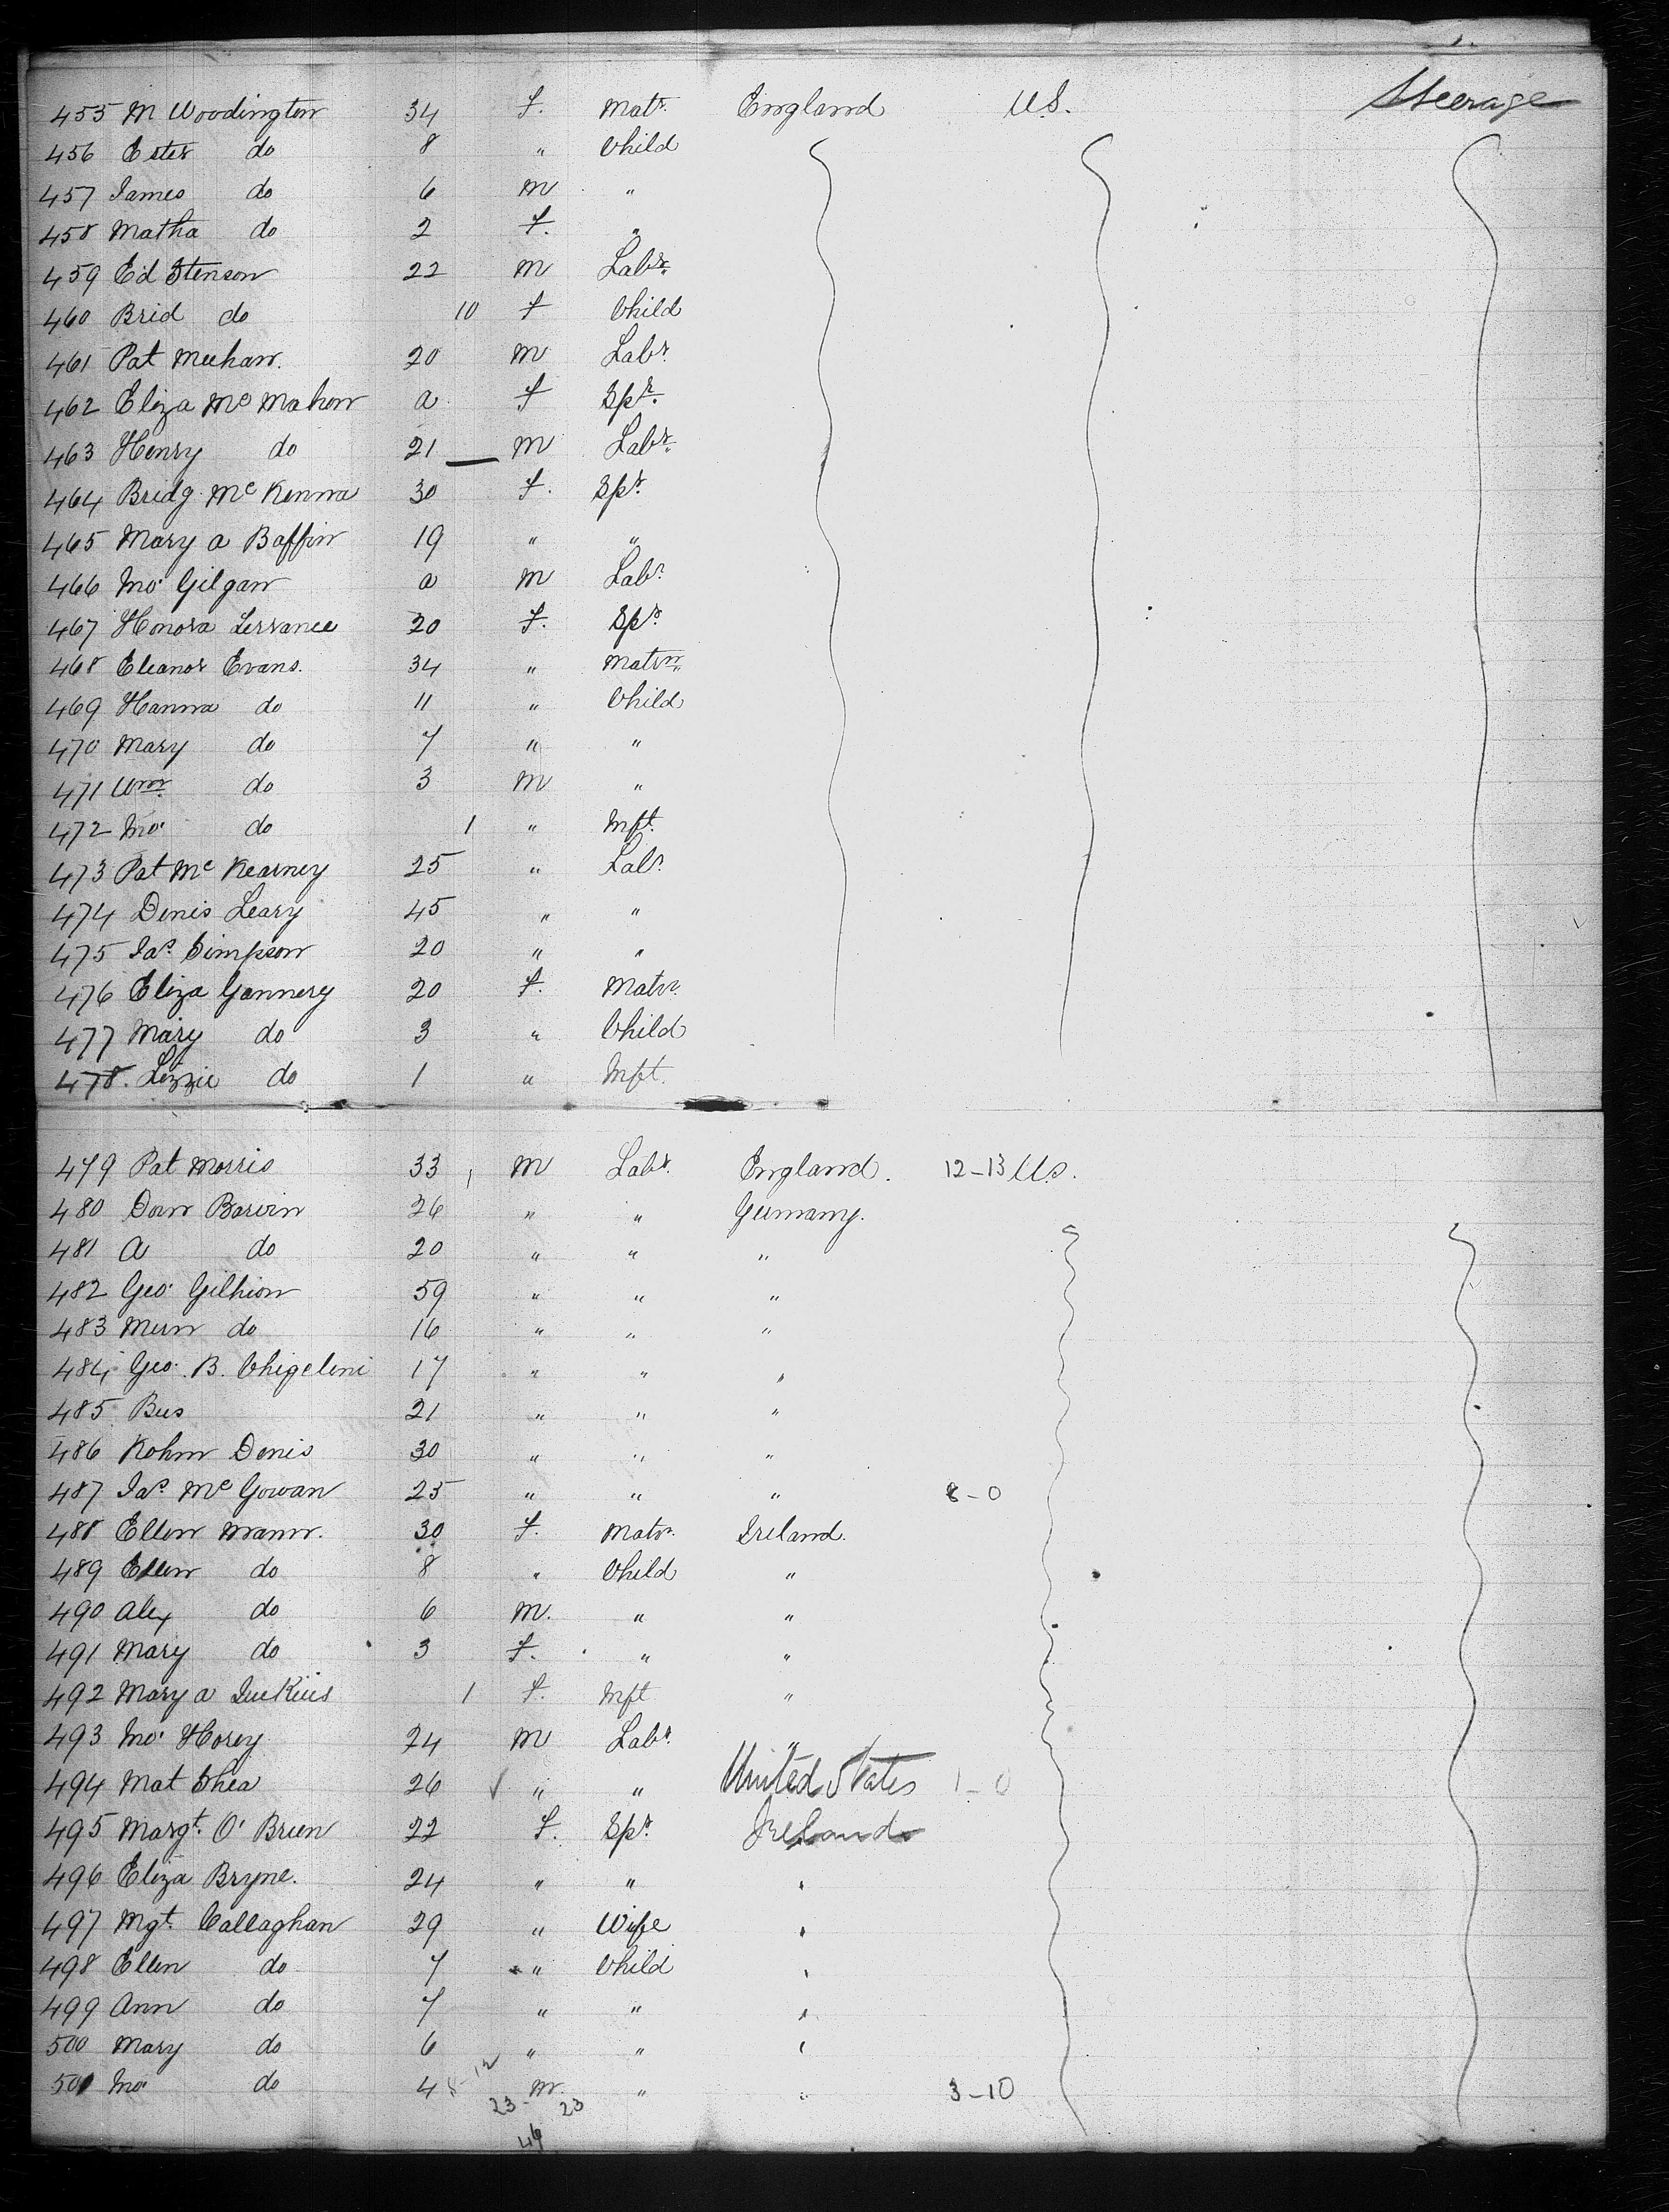 455 M Woodington 34 f. Matr. England U.S. Steerage
456 Ester do 8 " Child
457 James do 6 m "
458 Matha do 2 f. "
459 Ed Stenson 22 m Labr.
460 Brid do 10 f Child
461 Pat Meehan. 20 m Labr.
462 Eliza Mc Mahon a f Spr.
463 Henry do 21 — m Labr.
464 Bridg. Mc Kenna 30 f. Spr.
465 Mary a Baffin 19 " "
466 Jno. Gilgan a m Labr.
467 Honora Lerrance 20 f. Spr.
468 Eleanor Evans. 34 " Matrn.
469 Hanna do 11 " Child
470 Mary do 7 " "
471 Wm. do 3 m "
472 Jno. do 1 " Inft.
473 Pat Mc Kearney 25 " Labr.
474 Denis Leary 45 " "
475 Jas. Simpson 20 " "
476 Eliza Gannery 20 f. Matr.
477 Mary do 3 " Child
478. Lizzie do 1 " Inft.
479 Pat Morris 33 m Labr. England. 12-13 U.S.
480 Dom Barvin 26 " " Germany.
481 A do 20 " " "
482 Geo. Gilhion 59 " " "
483 do 16 " " "
484 Geo. B. Chigelini 17 " " "
485 Bus 21 " " "
486 Kohm Denis 30 " " "
487 Jas. Mc Gowan 25 " " " 8-0
488 Ellen Mann. 30 f. Matr. Ireland.
489 Ellen do 8 " Child "
490 Alex do 6 m. " "
491 Mary do 3 f. " "
492 Mary a 1 f. Inft "
493 Jno. Horey 24 m Labr. "
494 Mat Shea 26 √ " " United States 1-0
495 Margt. O' Brien 22 f. Spr. Ireland
496 Eliza Bryne. 24 " " "
497 Mgt. Callaghan 29 " Wife "
498 Ellen do 7 " Child "
499 Ann do 7 " " "
500 Mary do 6 " " "
501 Jno. do 4 m. " " 3-10
23 - 23
46